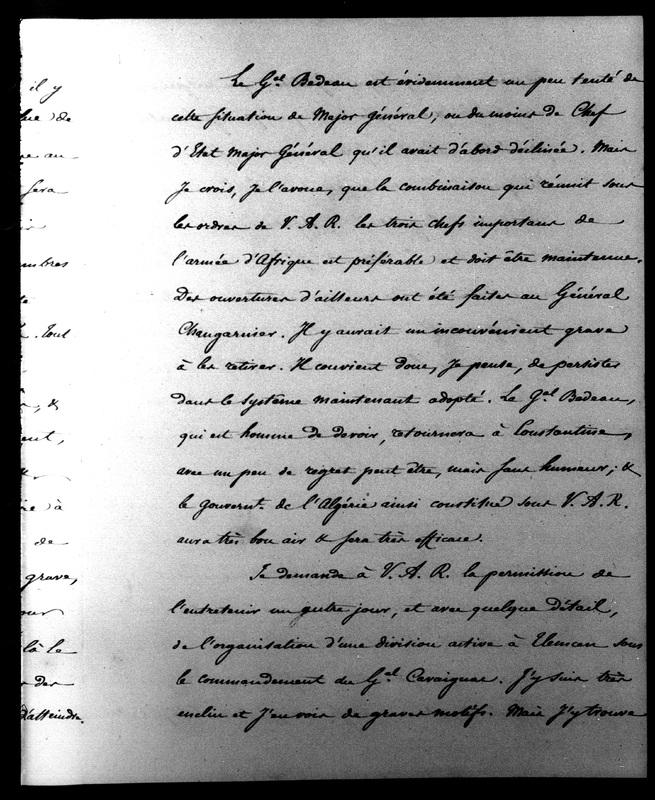 il y
de
au
sera
mbres
. Tout
, &
ent,
à
de
grave,
là le
des
d'atteindre.
Le Gal Bedeau est évidemment un peu tenté de
cette situation de Major Général, ou du moins de Chef
d'Etat Major Général qu'il avait d'abord déclinée. Mais
je crois, je l'avoue, que la combinaison qui réunit sous
les ordres de V. A. R. les trois chefs importans de
l'armée d'Afrique est préférable et doit être maintenue.
Des ouvertures d'ailleurs ont été faites au Général
Changarnier. Il y aurait un inconvénient grave
à les retirer. Il convient donc, je pense, de persister
dans le système maintenant adopté. Le Gal Bedeau,
qui est homme de devoir, retournera à Constantine,
avec un peu de regret peut être, mais sans humeur; &
le gouvernt. de l'Algérie ainsi constitué sous V. A. R.
aura très bon air & sera très efficace.
Je demande à V. A. R. la permission de
l'entretenir un autre jour, et avec quelque détail,
de l'organisation d'une division active à Tlemcen sous
le commandement du Gal Cavaignac. J'y suis très
enclin et j'en vois de graves motifs. Mais j'y trouve